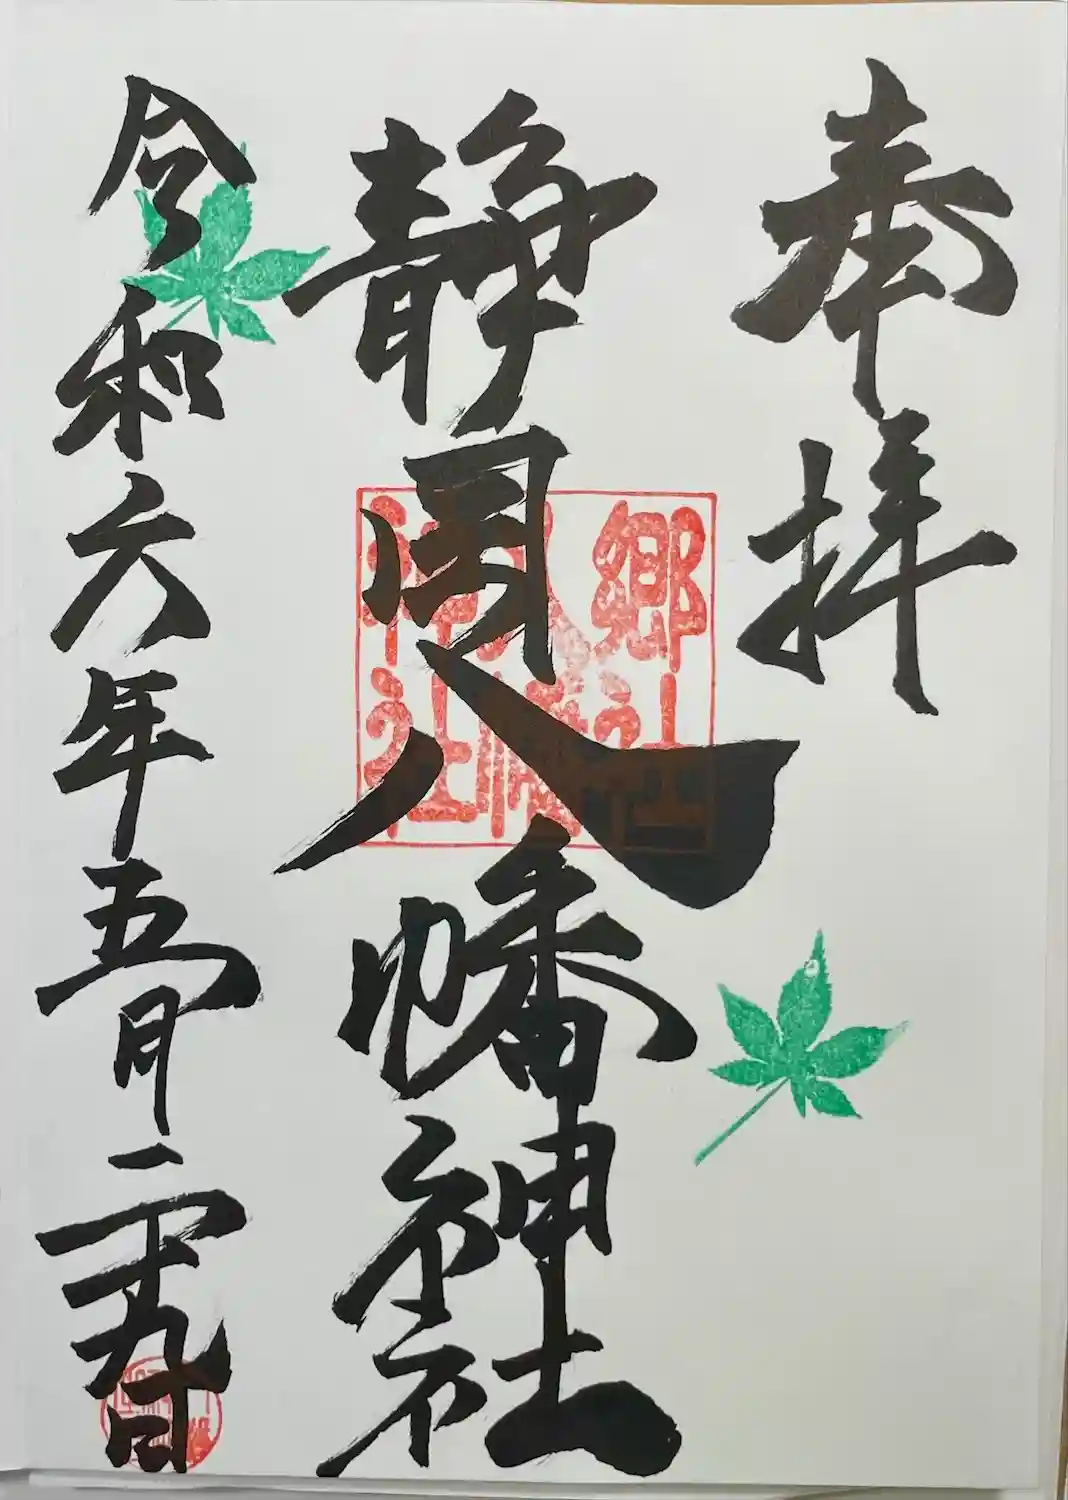 奉拝
静岡八幡神社
郷社
八幡
神社
令和六年五月二十九日